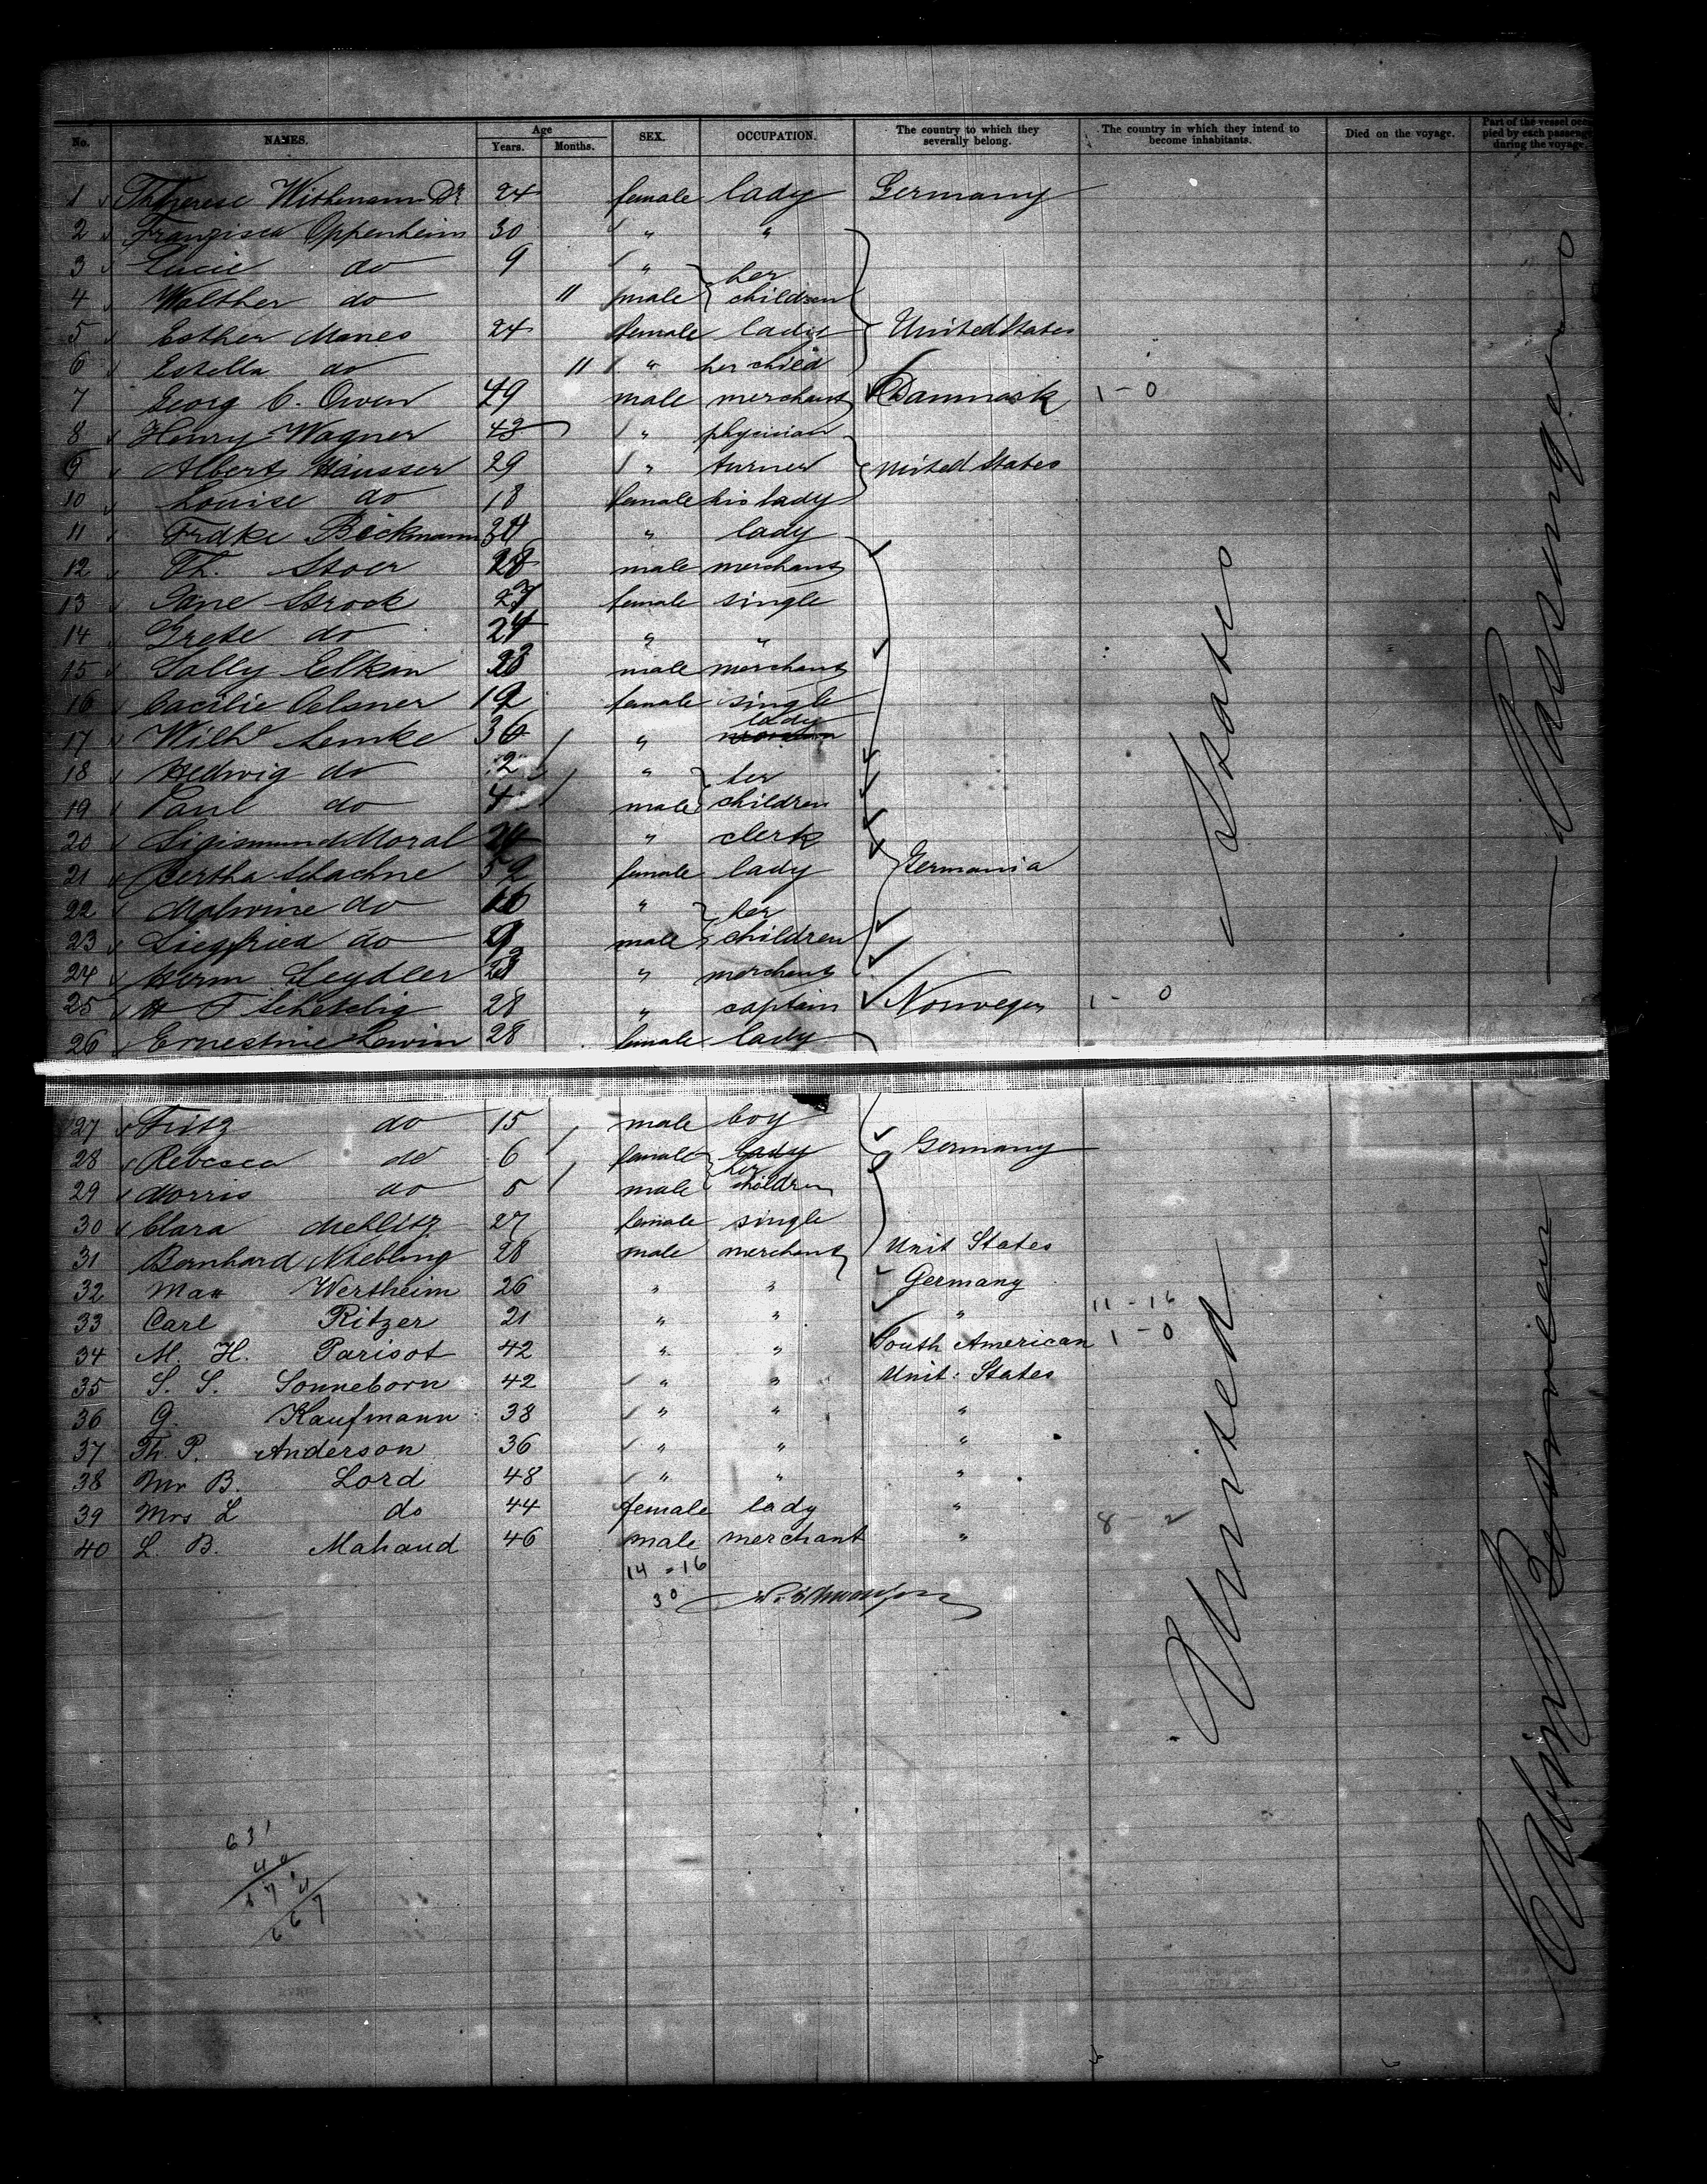 No. NAMES. Age Years. Months. SEX. OCCUPATION. The country to which they severally belong. The country in which they intend to become inhabitants. Died on the voyage. Part of the vessel occupied by each passenger during the voyage.
1 Therese Withmann Dr 24 female lady Germany
2 Franzisca Oppenheim 30 " "
3 Lucie do 9 " her
4 Walther do 11 male children
5 Esther Manes 24 female lady United States
6 Estella do 11 " her child
7 Georg C. Owen 49 male merchant Danmark 1 - 0
8 Henry Wagner 43 " physician
9 Albert Häusser 29 " turner United States
10 Louise do 18 female his lady
11 Frdke Böckmann 34 " lady
12 Th. Stoer 28 male merchant
13 Jane Strock 27 female single
14 Grete do 24 " "
15 Sally Elkan 28 male merchant
16 Cacilie Oelsner 19 female single
17 Wilh Lemke 36 " lady
18 Hedwig do 2 " her
19 Paul do 4 male children
20 Sigismund Moral 24 " clerk
21 Bertha Schachne 52 female lady Germania
22 Malwine do 16 " her
23 Siegfried do 9 male children
24 Herm Seydler 23 " merchant
25 H F Schetelig 28 " captain Norwegen 1 - 0
26 Ernestine Lewin 28 female lady
27 Fritz do 15 male boy
28 Rebecca do 6 female lady Germany
29 Morris do 5 male her children
30 Clara Mehlitz 27 female single
31 Bernhard Niebling 28 male merchant Unit States
32 Max Wertheim 26 " " Germany
33 Carl Ritzer 21 " " " 11 - 16
34 M. H. Parisot 42 " " South American 1 - 0
35 S. S. Sonneborn 42 " " Unit. States
36 G. Kaufmann 38 " " "
37 Th. P. Anderson 36 " " "
38 Mr B. Lord 48 " " "
39 Mrs L do 44 female lady "
40 L. B. Mahaud 46 male merchant " 8 - 2
14 - 16
30
United States
Cabin Passengers
631
40
671
4
667